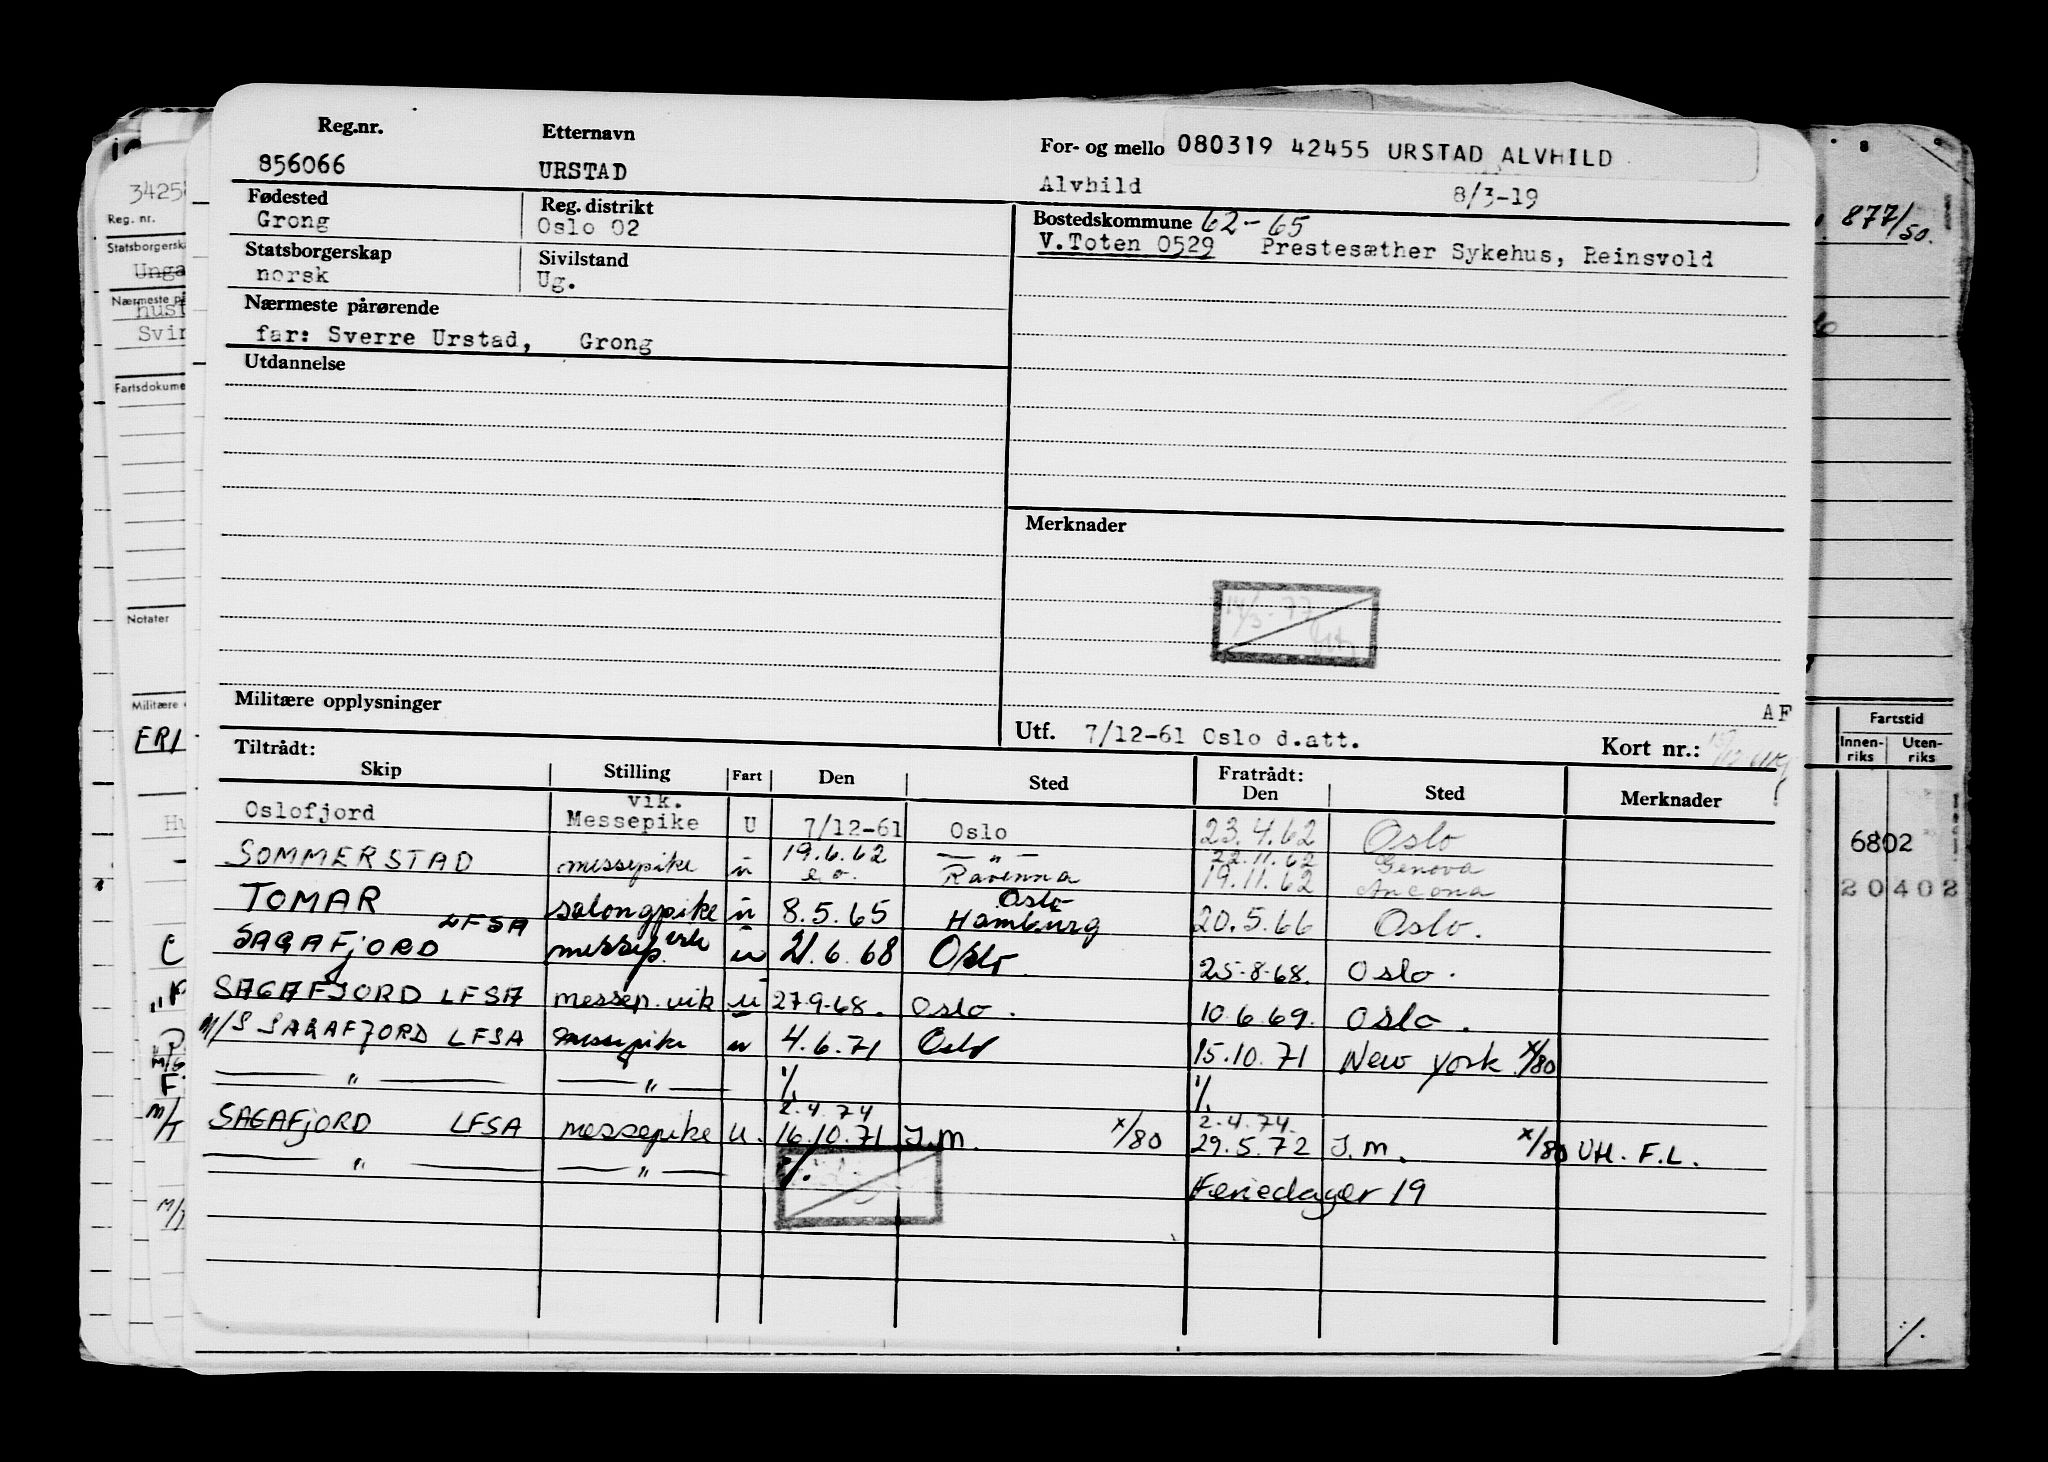 Reg.nr. Etternavn For- og mello 080319 42455 URSTAD ALVHILD
856066 URSTAD Alvhild 8/3-19
Fødested Reg. distrikt Bostedskommune 62-65
Grong Oslo 02 V.Toten 0529 Prestesæther Sykehus, Reinsvold
Statsborgerskap Sivilstand
norsk Ug.
Nærmeste pårørende
far: Sverre Urstad, Grong
Utdannelse
Merknader
14/3-77
Militære opplysninger
AF
Utf. 7/12-61 Oslo d.att. Kort nr.:
Tiltrådt: Fratrådt:
Skip Stilling Fart Den Sted Den Sted Merknader
Oslofjord vik. Messepike U 7/12-61 Oslo 23.4.62 Oslo
SOMMERSTAD messepike u 19.6.62 — " — 22.11.62 Genova
Ravenna 19.11.62 Ancona
TOMAR salongpike u 8.5.65 Oslo Hamburg 20.5.66 Oslo.
SAGAFJORD LFSA messep. vik u 21.6.68 Oslo 25-8-68. Oslo.
SAGAFJORD LFSA messep. vik u 27-9-68. Oslo. 10.6.69. Oslo.
M/S SAGAFJORD LFSA messepike u 4.6.71 Oslo 15.10.71 New York x/80
— " — — " — ·/. ·/.
2.4.74 2.4.74.
SAGAFJORD LFSA messepike u. 16.10.71 I.M. x/80 29.5.72 I.M. x/80 UH. F.L.
— " — — " — ·/.
Feriedager 19
3425
Reg. nr.
Statsborgersk
Unga
Nærmeste p
hust
Svir
Fartsdokume
Notater
Militære
FRI
Hu
C
M/G
F
M/T
877/50.
Fartstid
Innen-riks Uten-riks
6802
20402
·/.